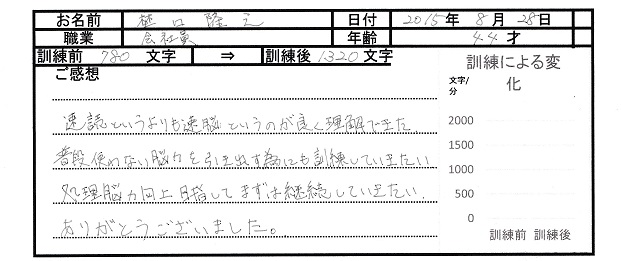 お名前 樋口 隆之 日付 2015年 8月 28日
職業 会社員 年齢 44才
訓練前 780 文字 ⇒ 訓練後 1320 文字
ご感想
速読というよりも速脳というのが良く理解できた
普段使わない脳力を引き出す為にも訓練していきたい
処理脳力向上目指してまずは継続していきたい.
ありがとうございました。
訓練による変化
文字/分
2000
1500
1000
500
0
訓練前 訓練後